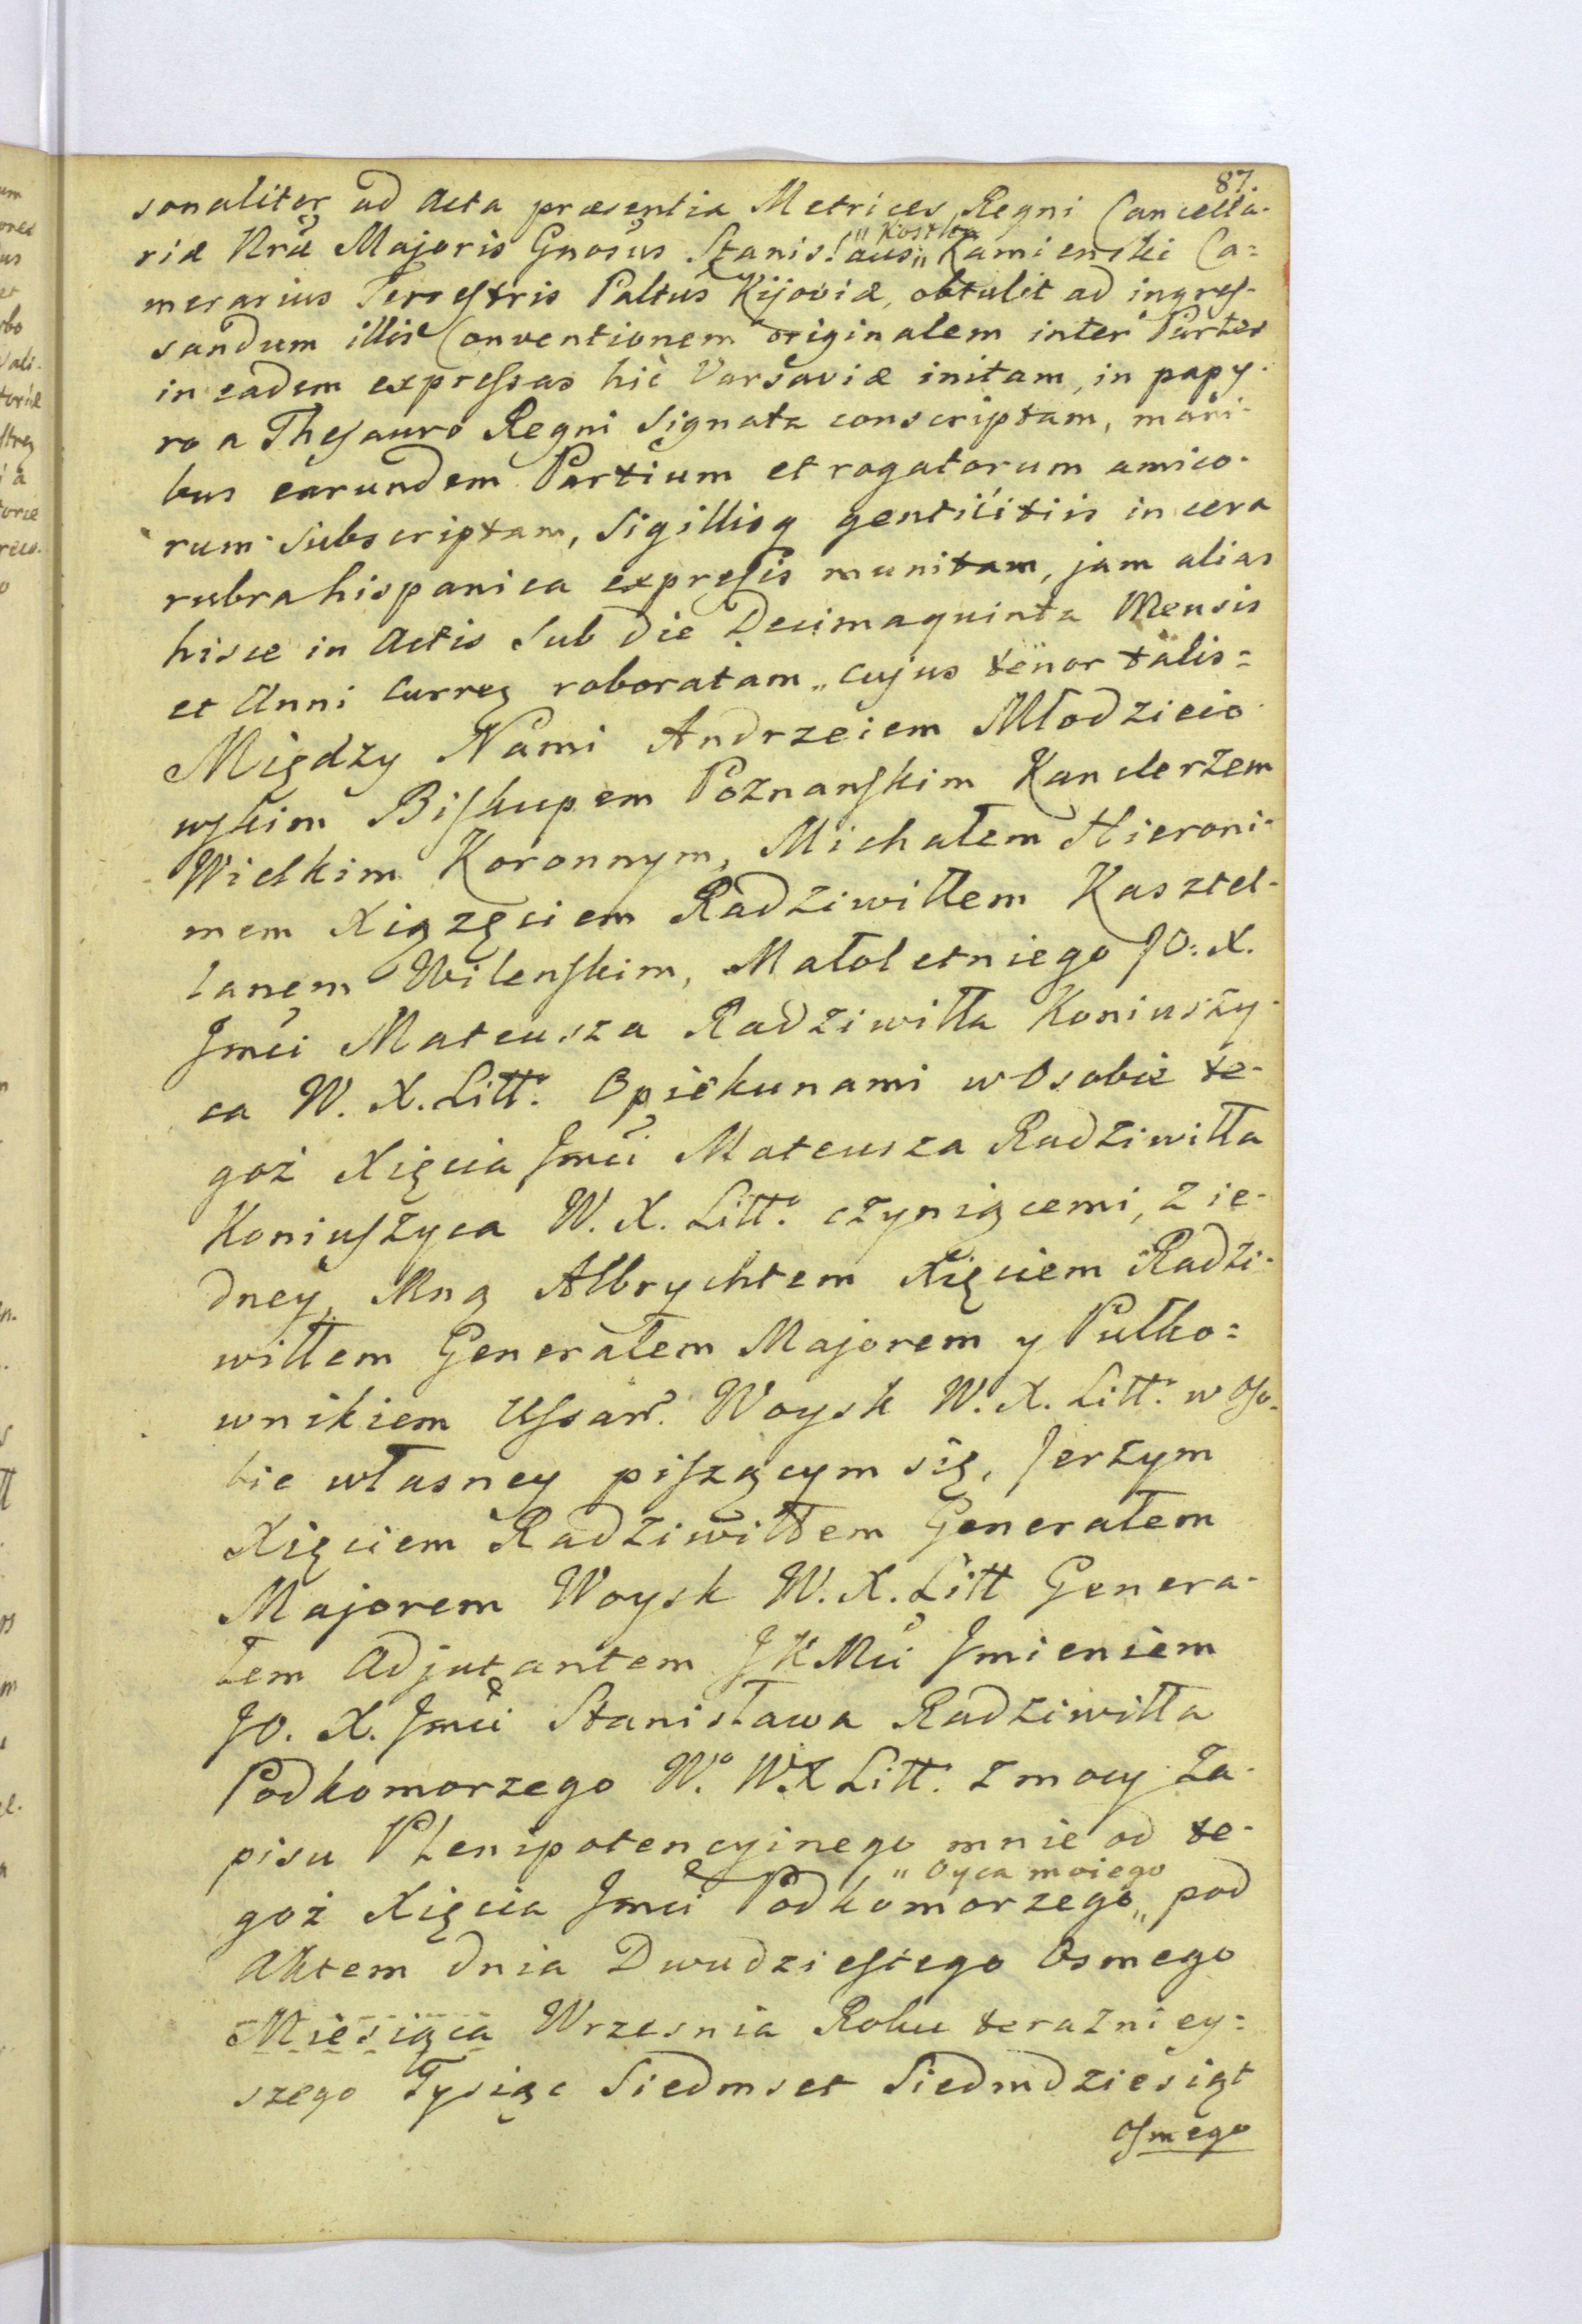 87.
sonaliter ad Acta præsentia Metrices Regni Cancella-
riæ Nræ Majoris Gnosus Stanislaus „ Kostka „ Kamienski Ca=
merarius Terrestris Paltus Kijoviæ, obtulit ad ingres-
sandum illis Conventionem originalem inter Partes
in eadem expressas hic Varsaviæ initam, in papy-
ro a Thesauro Regni Signata conscriptam, mani-
bus earundem Partium et rogatorum amico-
rum Subscriptam, Sigillisq gentilitiis in cera
rubra hispanica expressis munitam, jam alias
hisce in Actis Sub die Decimaquinta Mensis
et Anni Curren roboratam „ cujus tenor talis=
Między Nami Andrzeiem Młodzieio-
wskim Biskupem Poznanskim Kanclerzem
Wielkim Koronnym, Michałem Hieroni-
mem Xiążęciem Radziwiłłem Kasztel-
lanem Wilenskim, Małoletniego JO: X.
Jmci Mateusza Radziwiłła Koniuszy-
ca W. X. Litt: Opiekunami w Osobie te-
goż Xięcia Jmci Mateusza Radziwiłła
Koniuszyca W. X. Litt: czyniącemi, z ie-
dney, Mną Albrychtem Xięciem Radzi-
wiłłem Generałem Majorem y Pułko=
wnikiem Ussar. Woysk W. X. Litt: w Oso-
bie własney piszącym się, Jerzym
Xięciem Radziwiłłem Generałem
Majorem Woysk W. X. Litt Genera-
łem Adjutantem JKMci Jmieniem
JO. X. Jmci Stanisława Radziwiłła
Podkomorzego Wo WX Litt: z mocy Za-
pisu Plenipotencyinego mnie od te-
goż Xięcia Jmci Podkomorzego „ Oyca moiego „ pod
Aktem dnia Dwudziestego Osmego
Miesiąca Wrzesnia Roku terazniey=
szego Tysiąc Siedmset Siedmdziesiąt
Osmego